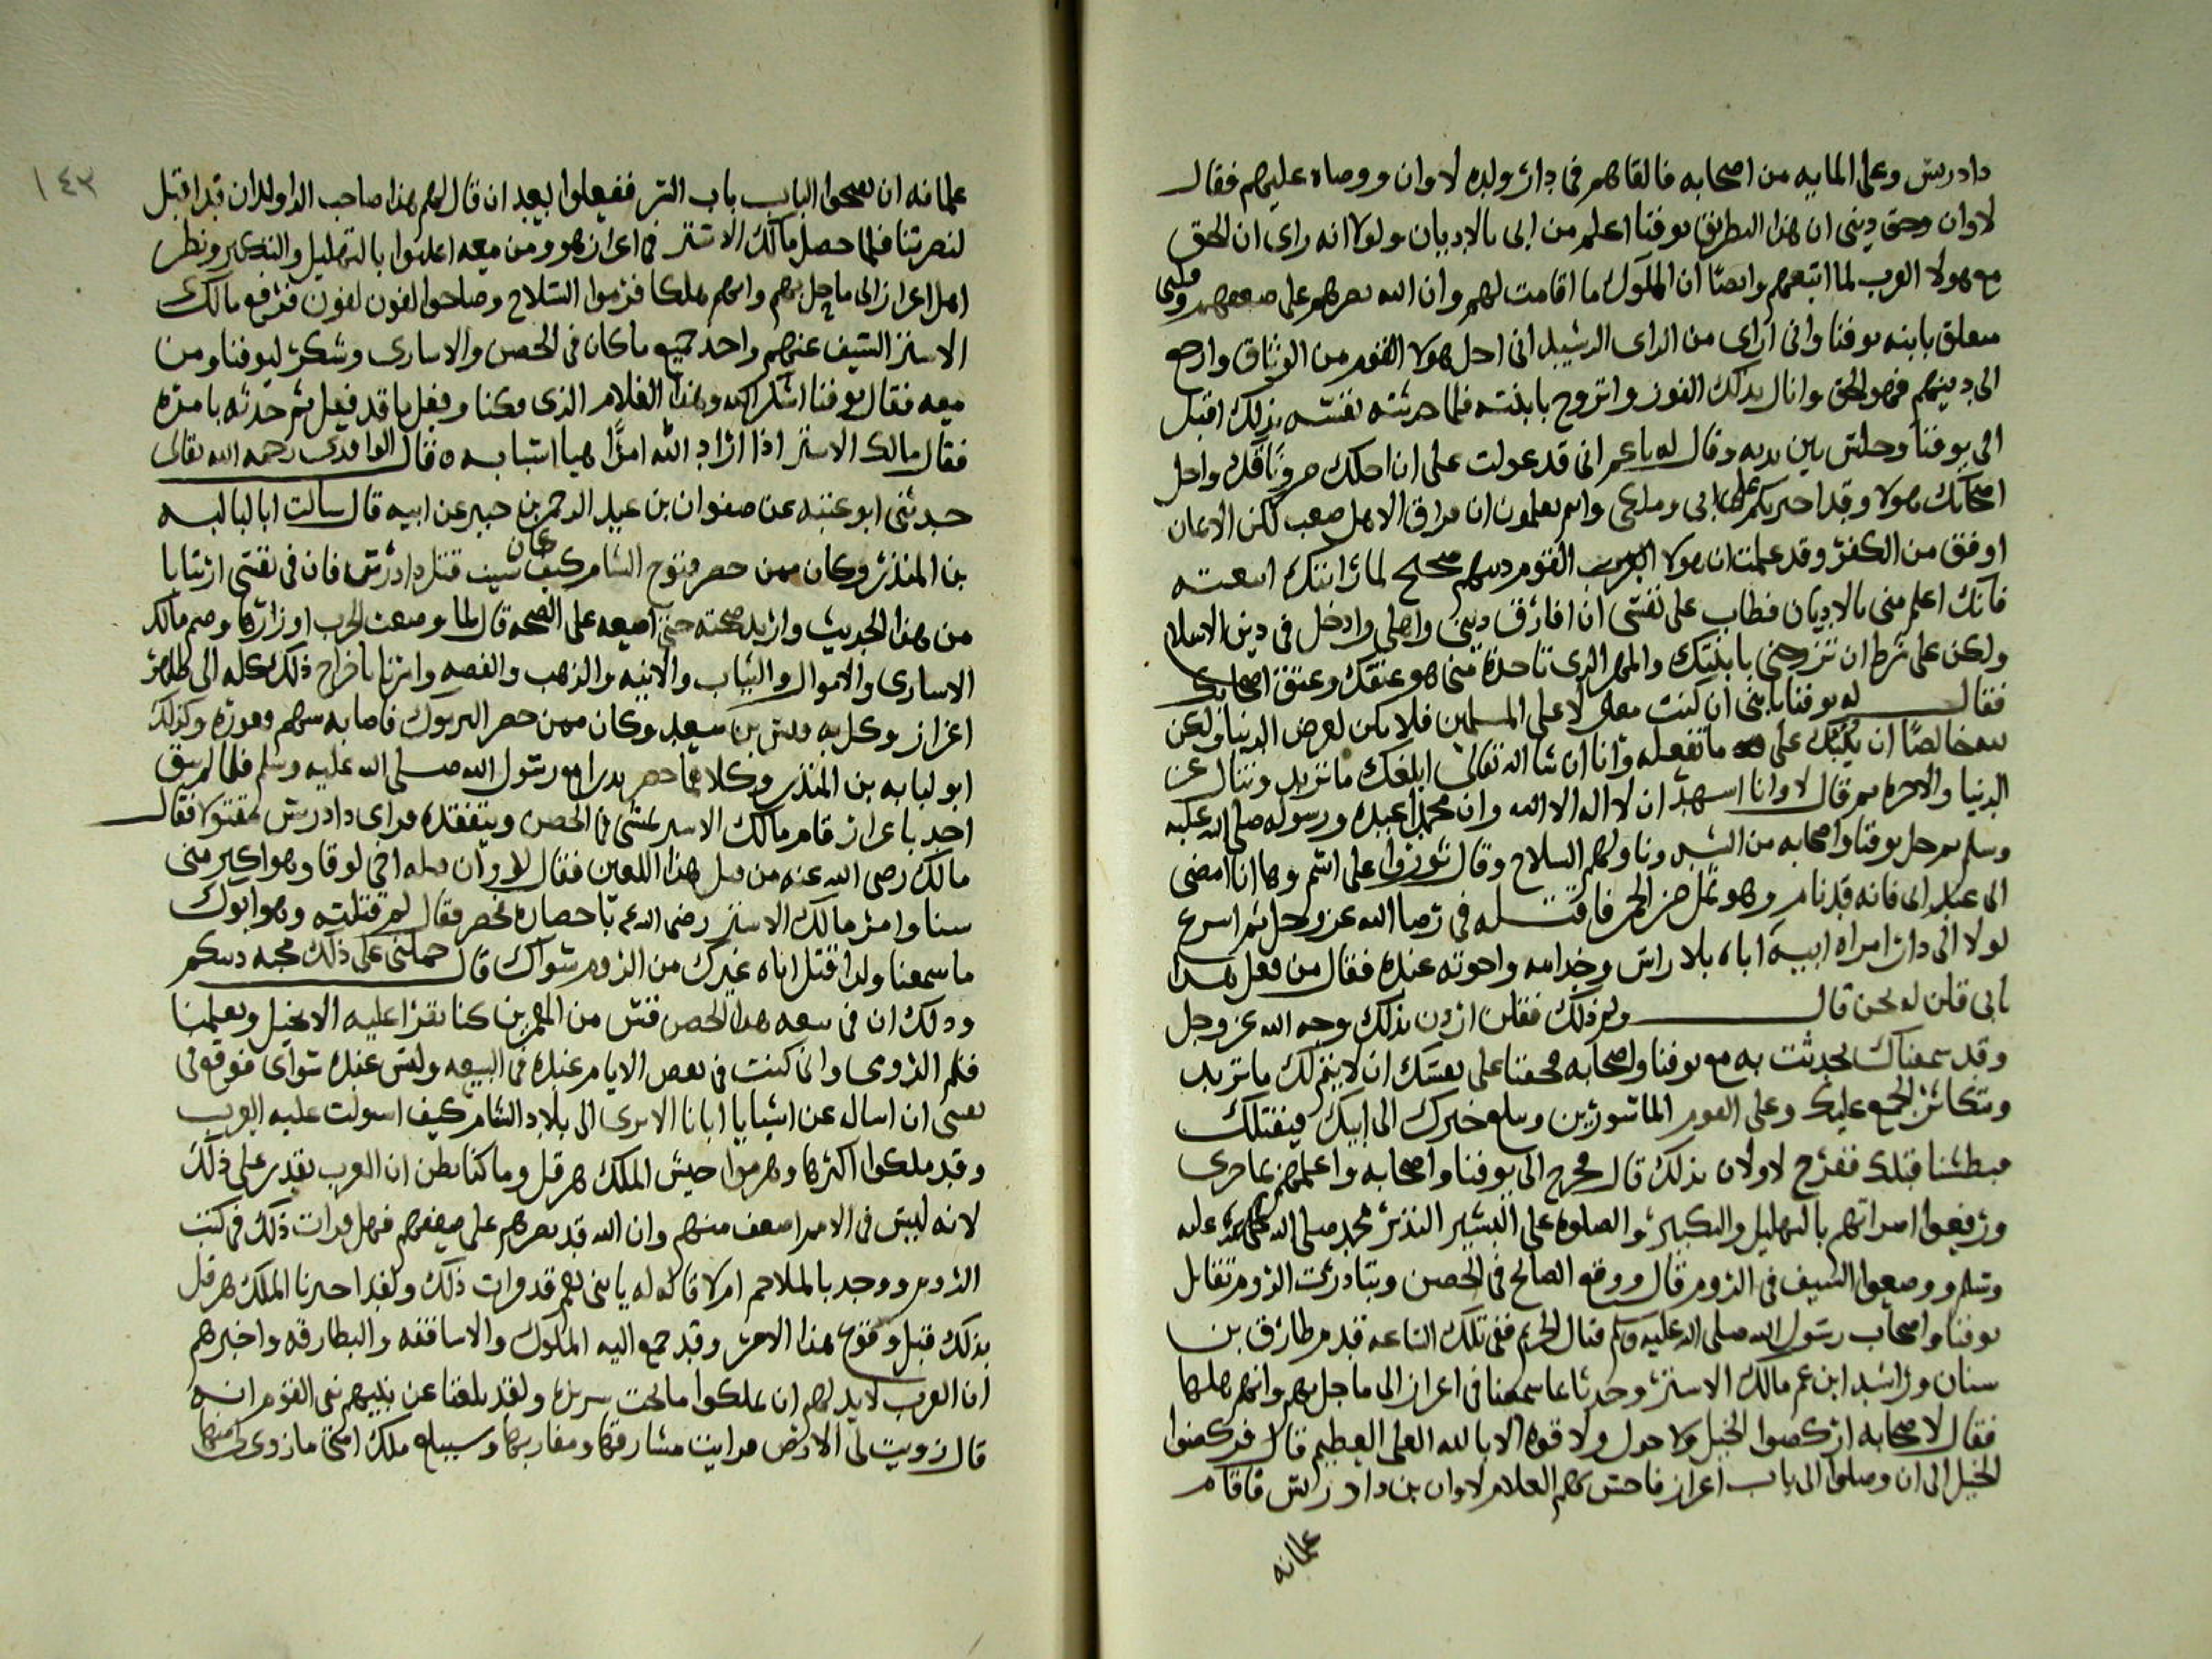 دادرس وعلى المايه من اصحابه فالقاهم في دار ولده لاوان ووصاه عليهم فقال
لاوان وحق ديني ان هذا البطريق يوقنا اعلم من ابى بالاديان ولولا انه راى ان الحق
مع هولا العرب لما اتبعهم وايضا ان الملوك ما اقامت لهم وان الله نصرهم على ضعفهم وقلبى
معلق بابنه يوقنا وانى ارى من الراى الرشيد انى احل هولا القوم من الوثاق وارجع
الى دينهم فهو الحق وانال بذلك الفوز واتزوج بابنته فلما حدثته نفسه بذلك اقبل
الى يوقنا وجلس بين يديه وقال له ياعم انى قد عولت على ان احلك من وثاقك واحل
اصحابك هولا وقد اخترتكم على ابى وملكى وانتم تعلمون ان فراق الاهل صعب لكن الايمان
اوفق من الكفر وقد علمت ان هولا القوم دينهم صحيح لما راىتك اتبعته
فانك اعلم منى بالاديان فطاب على نفسى ان افارق دينى واهلى وادخل في دين الاسلام
ولكن على شرط ان تزوجنى بابنتك والمهر الذى تاخذه منى هو عتقك وعتق اصحابك
فقال له يوقنا يا بنى ان كنت معولا على المسلمين فلا يكن لعرض الدنيا ولكن
لله خالصا ان يثيبك على ما تفعله وانا ان شا الله تعالى ابلغك ما تريد وتنال عز
الدنيا والاخره ثم قال لاوانا اشهد ان لا اله الا الله وان محمدا عبده ورسوله صلى الله عليه
وسلم ثم حل يوقنا واصحابه من الشد وناولهم السلاح وقال ثوروا على اسم وها انا امضى
الى عند ابى فانه قد نام وهو ثمل من الخمر فاقتله في رضا الله عز وجل ثم اسرع
لولا الى دار امراه ابيه اباه بلا راس وخدامه واخوته عنده فقال من فعل هذا
بابى قلن له نحن قال ولم ذلك فقلن اردن بذلك وجه الله عز وجل
وقد سمعناك تحدثت به مع يوقنا واصحابه فخفنا على نفسك ان لا يتم لك ما تريد
وتكاثر الجمع عليك وعلى القوم الماسورين وبلغ خبرك الى ابيك فيقتلك
فبطشنا قتله ففرح لاولان بذلك قال فخرج الى يوقنا واصحابه واعلمهم بما جرى
ورفعوا اصواتهم بالتهليل والتكبير والصلوه على البشير النذير محمد صلى الله عليه
وسلم ووضعوا السيف في الروم قال ووقع الصائح في الحصن وتبادرت الروم تقاتل
يوقنا واصحاب رسول الله صلى الله عليه وسلم قتال الحريم ففى تلك الساعه قدم طارق بن
سنان وراشد ابن عم مالك الاشتر وحدثا بما سمعنا في اعزاز الى ما حل بهم وانهم هلكا
فقال لاصحابه اركضوا الخيل ولا حول ولا قوه الا بالله العلى العظيم قال فركضوا
الخيل الى ان وصلوا الى باب اعزاز فاحس بهم الغلام لاوان بن دادرس فاقام
غلمانه
١٤٣
غلمانه ان يفتحوا الباب باب السر ففعلوا بعد ان قال لهم هذا صاحب الداولدان قد اقبل
لنصرتنا فلما حصل مالك الاشتر في اعزاز هو ومن معه اعلنوا بالتهليل والتكبير ونظر
اهل اعزاز الى ما حل بهم وانهم هلكا فرموا السلاح وصاحوا لفون لفون فرفع مالك
الاشتر السيف عنهم واخذ جميع ما كان في الحصن والاسارى وشكر ليوقنا ومن
معه فقال يوقنا اشكر الله وهذا الغلام الذى فكنا وفعل ما قد فعل ثم حدثه بامره
فقال مالك الاشتر اذا اراد الله امرا هيا اسبابه ه قال الواقدى رحمه الله تعالى
حدثنى ابو عتبه عن صفوان بن عبد الرحمن بن جبير عن ابيه قال سالت ابا لبابه
بن المنذر وكان ممن حضر فتوح الشام كيف كان سبب قتل دادرس فان في نفسى ارتيابا
من هذا الحديث واريد صحته حتى اضيعه على الصحه قال لما وضعت الحرب اوزارها وضم مالك
الاسارى والاموال والثياب والانيه والذهب والفضه وامرنا باخراج ذلك كله الى ظاهر
اعزاز وكل به قيس بن سعيد وكان ممن حضر اليرموك فاصابه سهم وعوره وكذلك
ابو لبابه بن المنذر وكلاهما حضر بدرا مع رسول الله صلى الله عليه وسلم فلما لم يبق
احد باعزاز قام مالك الاشتر يمشى في الحصن ويتفقده فراى دادرس مقتولا فقال
مالك رضى الله عنه من قتل هذا اللعين فقال لاوان قتله اخى لوقا وهو اكبر منى
سنا وامر مالك الاشتر رضى الله عنه باحضاره فحضر فقال لم قتلته وهو ابوك
ما سمعنا ولدا قتل اباه غيرك من الروم سواك قال حملنى على ذلك محبه دينكم
وذلك ان في بيعه هذا الحصن قس من المعمرين كنا نقرا عليه الانجيل ويعلمنا
قلم الرومى وانى كنت في بعض الايام عنده في البيعه وليس عنده سواى فوقع في
نفسى ان اساله عن اشيا يا ابانا الا ترى الى بلاد الشام كيف استولت عليه العرب
وقد ملكوا اكثرها وهزموا جيش الملك هرقل وما كنا نظن ان العرب يقدر على ذلك
لانه ليس في الامم اضعف منهم وان الله قد نصرهم على ضعفهم فهل قرات ذلك في كتب
الروم ووجد بالملاحم ام لا قال له يا بنى نعم قد قرات ذلك ولقد اخبرنا الملك هرقل
بذلك قبل وقوع هذا الامر وقد جمع اليه الملوك والاساقفه والبطارقه واخبرهم
ان العرب لا بد لهم ان يملكوا ما تحت سريره ولقد بلغنا عن نبيهم نبى القوم انه
قال زويت لى الارض فرايت مشارقها ومغاربها وسيبلغ ملك امتى ما زوى لى منها